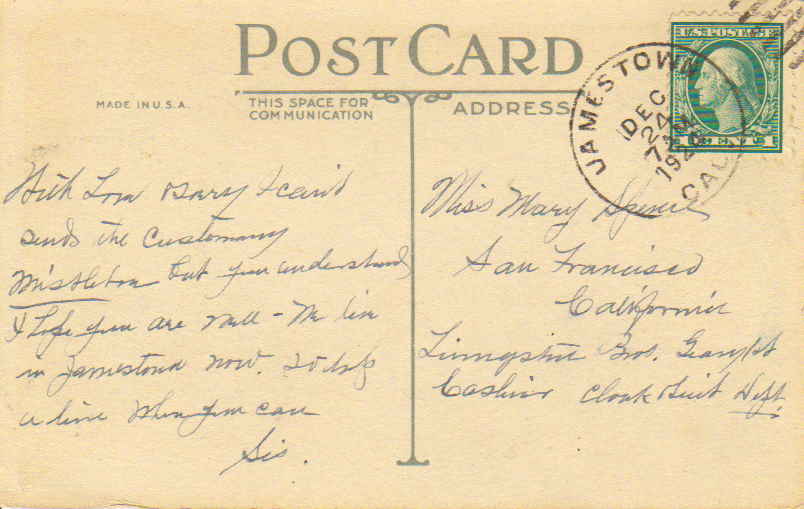 POST CARD
MADE IN U.S.A.
THIS SPACE FOR
COMMUNICATION
ADDRESS
U.S. POSTAGE
JAMESTOWN
DEC
24
7 AM
1920
CAL.
With Love I can't
sends the Customary
Mistletoe but you understand,
I hope you are well - We live
in Jamestown now.
a line when you can
Sis.
Miss Mary Spencer
San Francisco
California
Livingston Bros. Geary St
Cashier Cloak & Suit Dept.